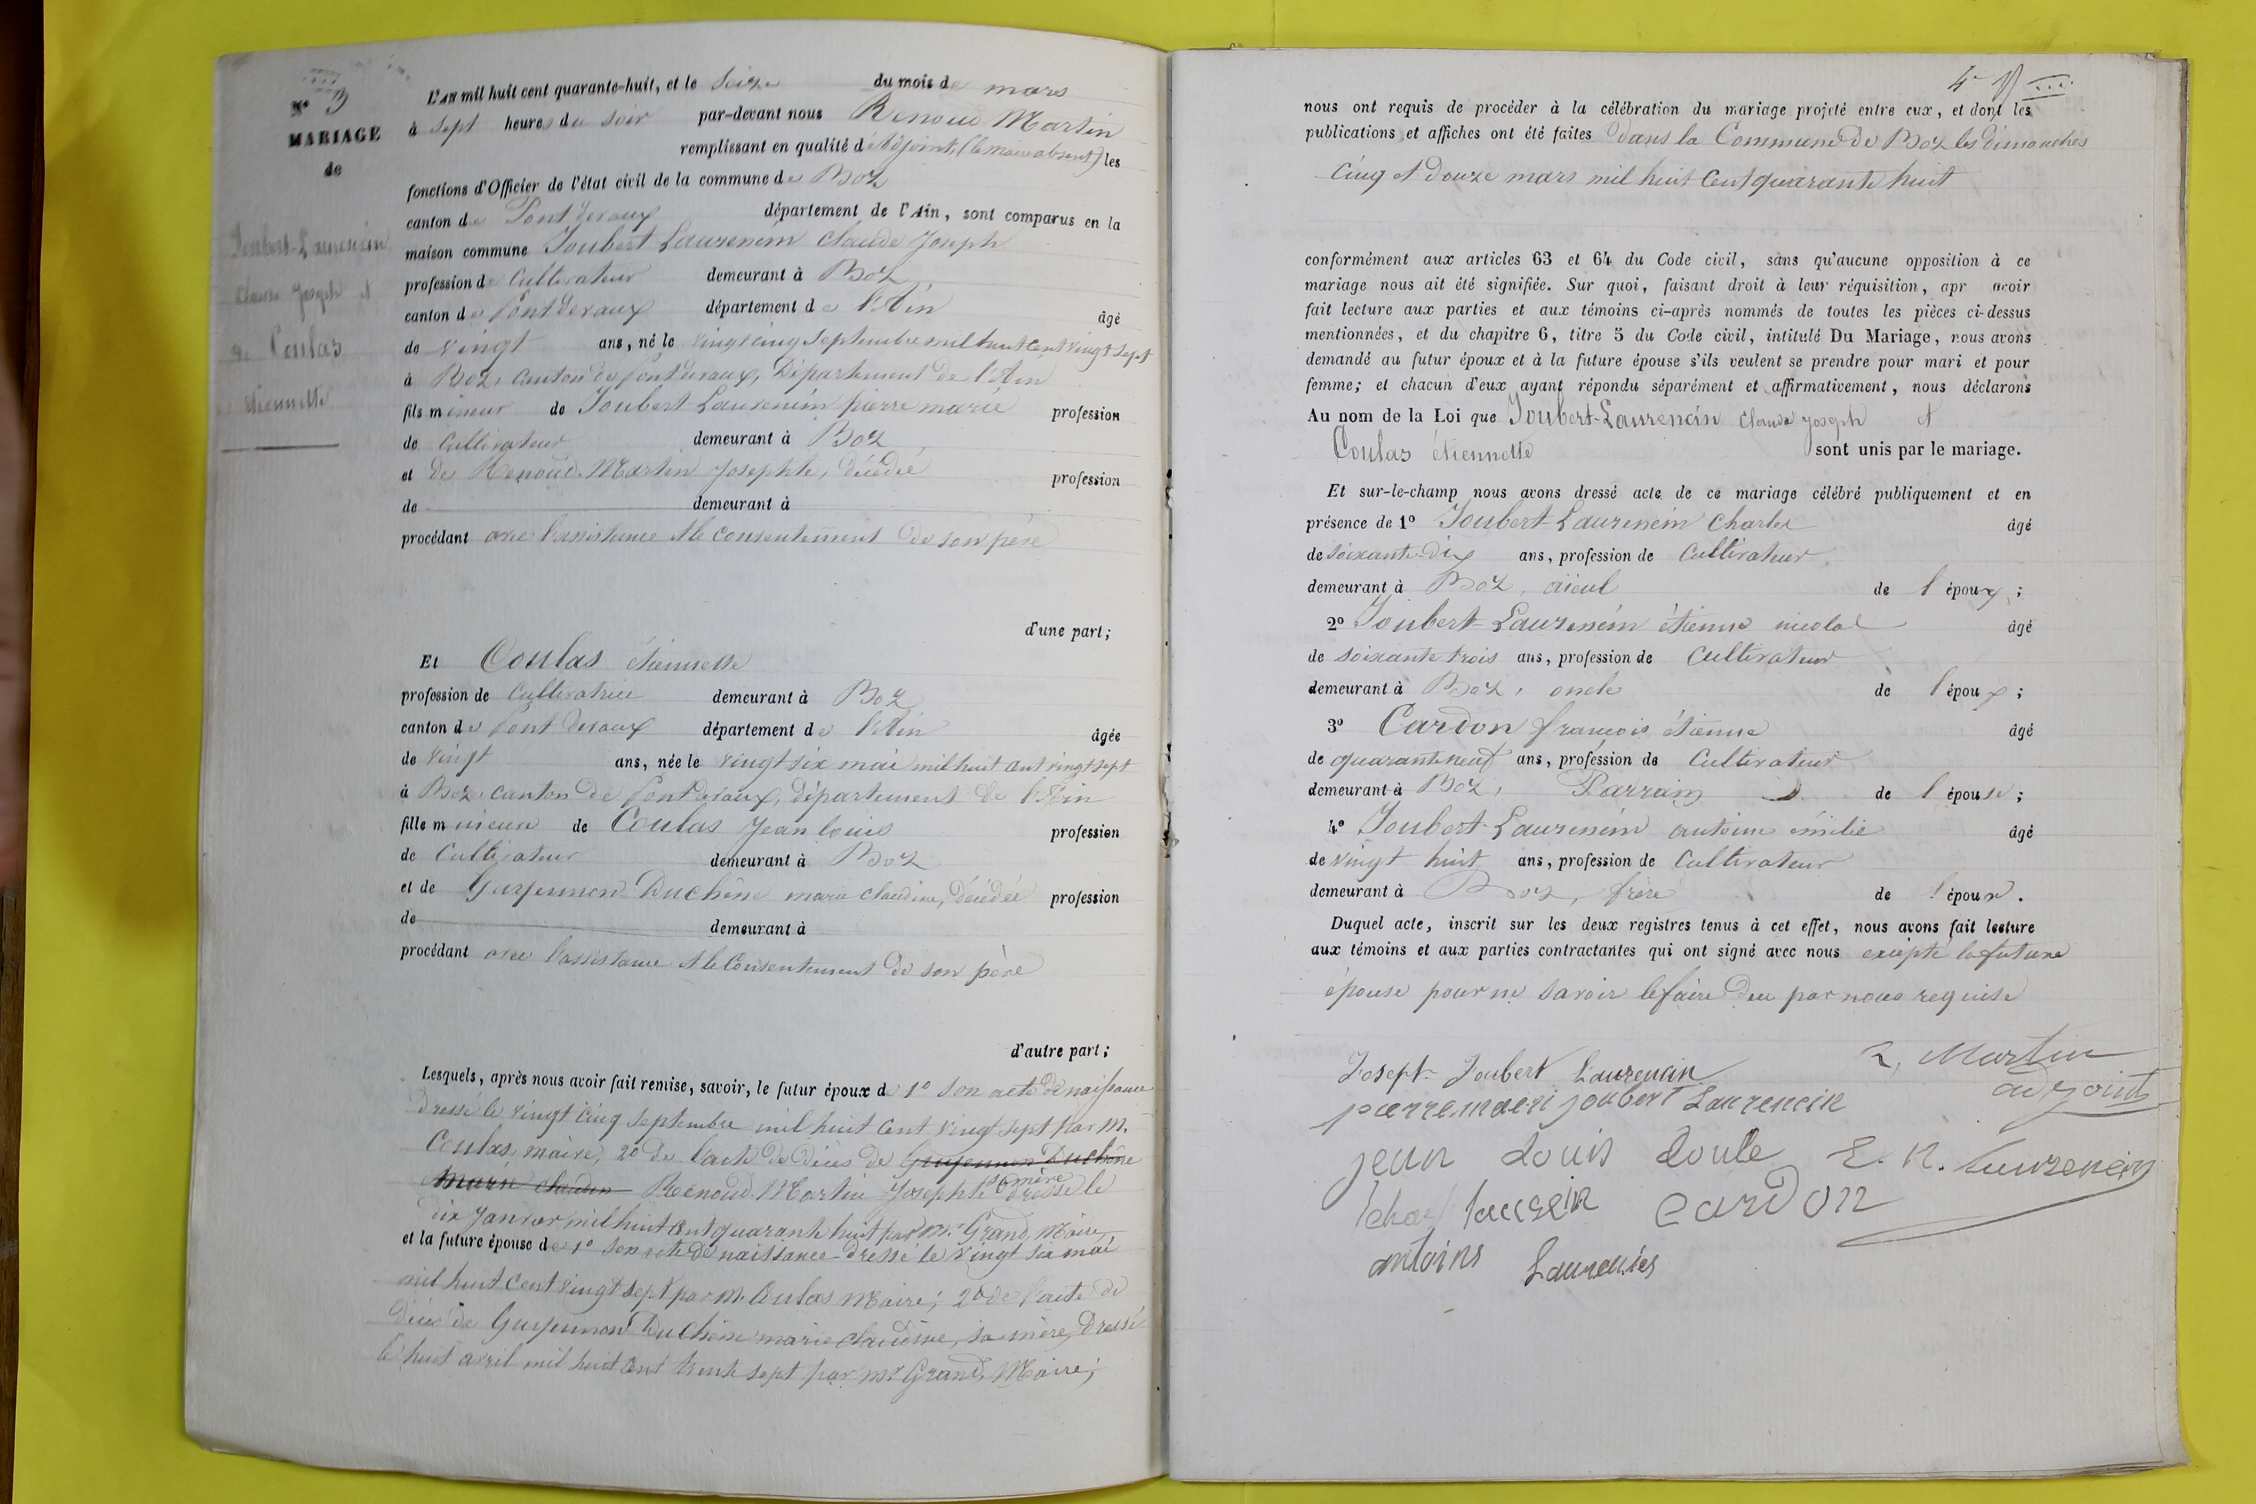 N° 3
MARIAGE
de
Joubert-Laurencin
Claude Joseph et
de Coulas
étiennette
L'AN mil huit cent quarante-huit, et le Seize du mois de mars
à Sept heures du soir par-devant nous Renoud Martin
remplissant en qualité d'Adjoint, (le maire absent) les
fonctions d'Officier de l'état civil de la commune de Boz
canton de Pont devaux département de l'Ain, sont comparus en la
maison commune Joubert Laurencin Claude Joseph
profession de Cultivateur demeurant à Boz
canton de Pontdevaux département de l'Ain âgé
de vingt ans, né le vingt cinq Septembre mil huit cent vingt sept
à Boz, canton de pontdevaux, Département de l'Ain
fils mineur de Joubert-Laurencin pierre marie profession
de Cultivateur demeurant à Boz
et de Renoud-Martin Josephte, décédée profession
de demeurant à
procédant avec l'assistance et le consentement de son père
d'une part;
Et Coulas étiennette
profession de Cultivatrice demeurant à Boz
canton de Pont devaux département de l'Ain âgée
de vingt ans, née le vingt six mai mil huit cent vingt sept
à Boz, canton de Pontdevaux, département de l'Ain
fille mineure de Coulas Jean louis profession
de Cultivateur demeurant à Boz
et de Guyennon-Duchêne marie Claudine, décédée profession
de demeurant à
procédant avec l'assistance et le Consentement de son père
d'autre part;
Lesquels, après nous avoir fait remise, savoir, le futur époux de 1° Son acte de naissance
dressé le vingt cinq Septembre mil huit cent vingt sept par M.
Coulas, maire, 2° de l'acte de décès de Guyennon Duchêne
Marie Claudine Renoud-Martin Josephte sa mère dressé le
dix Janvier mil huit cent quarante huit par Mr Grand, Maire,
et la future épouse de 1° son acte de naissance dressé le vingt six mai
mil huit cent vingt sept par M. Coulas Maire; 2° de l'acte de
décès de Guyennon Duchêne marie claudine, sa mère, Dressé
le huit avril mil huit cent trente sept par Mr Grand, Maire;
nous ont requis de procéder à la célébration du mariage projeté entre eux, et dont les
publications et affiches ont été faites dans la Commune de Boz les dimanches
Cinq et Douze mars mil huit Cent quarante huit
conformément aux articles 63 et 64 du Code civil, sans qu'aucune opposition à ce
mariage nous ait été signifiée. Sur quoi, faisant droit à leur réquisition, apr avoir
fait lecture aux parties et aux témoins ci-après nommés de toutes les pièces ci-dessus
mentionnées, et du chapitre 6, titre 5 du Code civil, intitulé Du Mariage, nous avons
demandé au futur époux et à la future épouse s'ils veulent se prendre pour mari et pour
femme; et chacun d'eux ayant répondu séparément et affirmativement, nous déclarons
Au nom de la Loi que Joubert-Laurencin Claude Joseph et
Coulas étiennette sont unis par le mariage.
Et sur-le-champ nous avons dressé acte de ce mariage célébré publiquement et en
présence de 1° Joubert-Laurencin Charles âgé
de soixante-dix ans, profession de Cultivateur
demeurant à Boz, aïeul de l'époux;
2° Joubert-Laurencin étienne nicolas âgé
de soixante trois ans, profession de Cultivateur
demeurant à Boz, oncle de l'époux;
3° Cardon françois étienne âgé
de quarante neuf ans, profession de Cultivateur
demeurant à Boz, Parrain de l'épouse;
4° Joubert-Laurencin antoine émilie âgé
de vingt huit ans, profession de Cultivateur
demeurant à Boz, frère de l'époux.
Duquel acte, inscrit sur les deux registres tenus à cet effet, nous avons fait lecture
aux témoins et aux parties contractantes qui ont signé avec nous excepté la future
épouse pour ne savoir le faire deu par nous requise
Josept Joubert Laurencin R. Martin
adjoint
pierre marie joubert Laurencin
jean Louis Coula E. N. Laurencin
Char laurecin cardon
antoins Laurencin